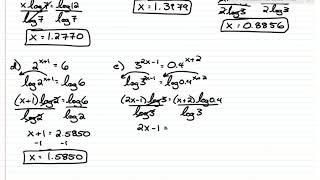 x log7 = log12
log7 log7
x = 1.2770
2log3 2log3
x = 0.8856
d) 2^(x+1) = 6
log2^(x+1) = log6
(x+1)log2 = log6
log2 log2
x+1 = 2.5850
-1 -1
x = 1.5850
e) 3^(2x-1) = 0.4^(x+2)
log3^(2x-1) = log0.4^(x+2)
(2x-1)log3 = (x+2)log0.4
log3 log3
2x-1 =